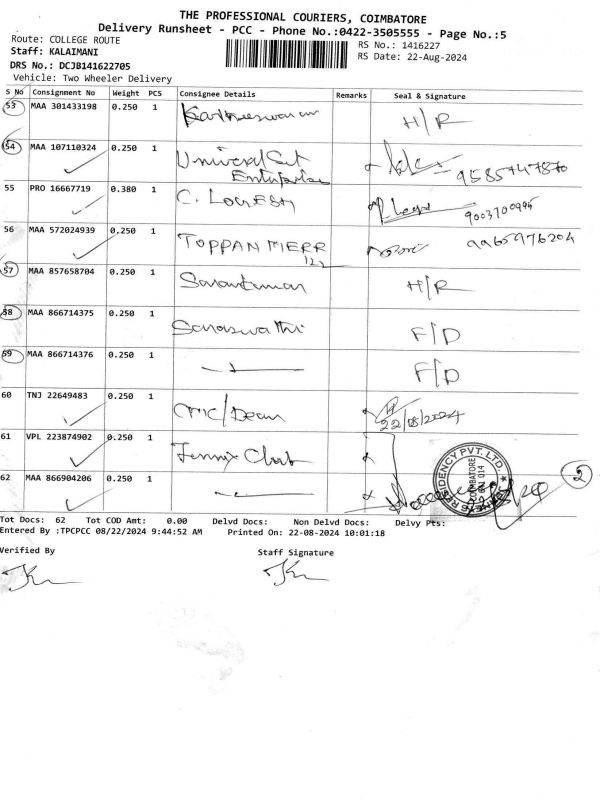 THE PROFESSIONAL COURIERS, COIMBATORE
Delivery Runsheet - PCC - Phone No.:0422-3505555 - Page No.:5
Route: COLLEGE ROUTE
RS No.: 1416227
Staff: KALAIMANI
RS Date: 22-Aug-2024
DRS No.: DCJB141622705
Vehicle: Two Wheeler Delivery
S No Consignment No Weight PCS Consignee Details Remarks Seal & Signature
53 MAA 301433198 0.250 1 H/R
54 MAA 107110324 0.250 1 Universal Cut
Enterprises 9585747870
55 PRO 16667719 0.380 1 C. LOGESH 9003700995
56 MAA 572024939 0.250 1 TOPPAN MERR 9965976204
57 MAA 857658704 0.250 1 Saravanan H/R
58 MAA 866714375 0.250 1 Saraswathi F/D
59 MAA 866714376 0.250 1 F/D
60 TNJ 22649483 0.250 1 CMC/Dean 22/08/2024
61 VPL 223874902 0.250 1
62 MAA 866904206 0.250 1
RESIDENCY PVT. LTD.
COIMBATORE
641 014
2
Tot Docs: 62 Tot COD Amt: 0.00 Delvd Docs: Non Delvd Docs: Delvy Pts:
Entered By :TPCPCC 08/22/2024 9:44:52 AM Printed On: 22-08-2024 10:01:18
Verified By Staff Signature